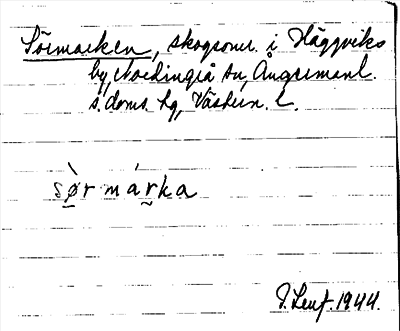 Sörmarken, skogsomr. i Häggviks
by, Nordingrå sn, Ångermanl.
s. doms. hg, Västern. l.
sø̀r márka
P. Lenf. 1944.